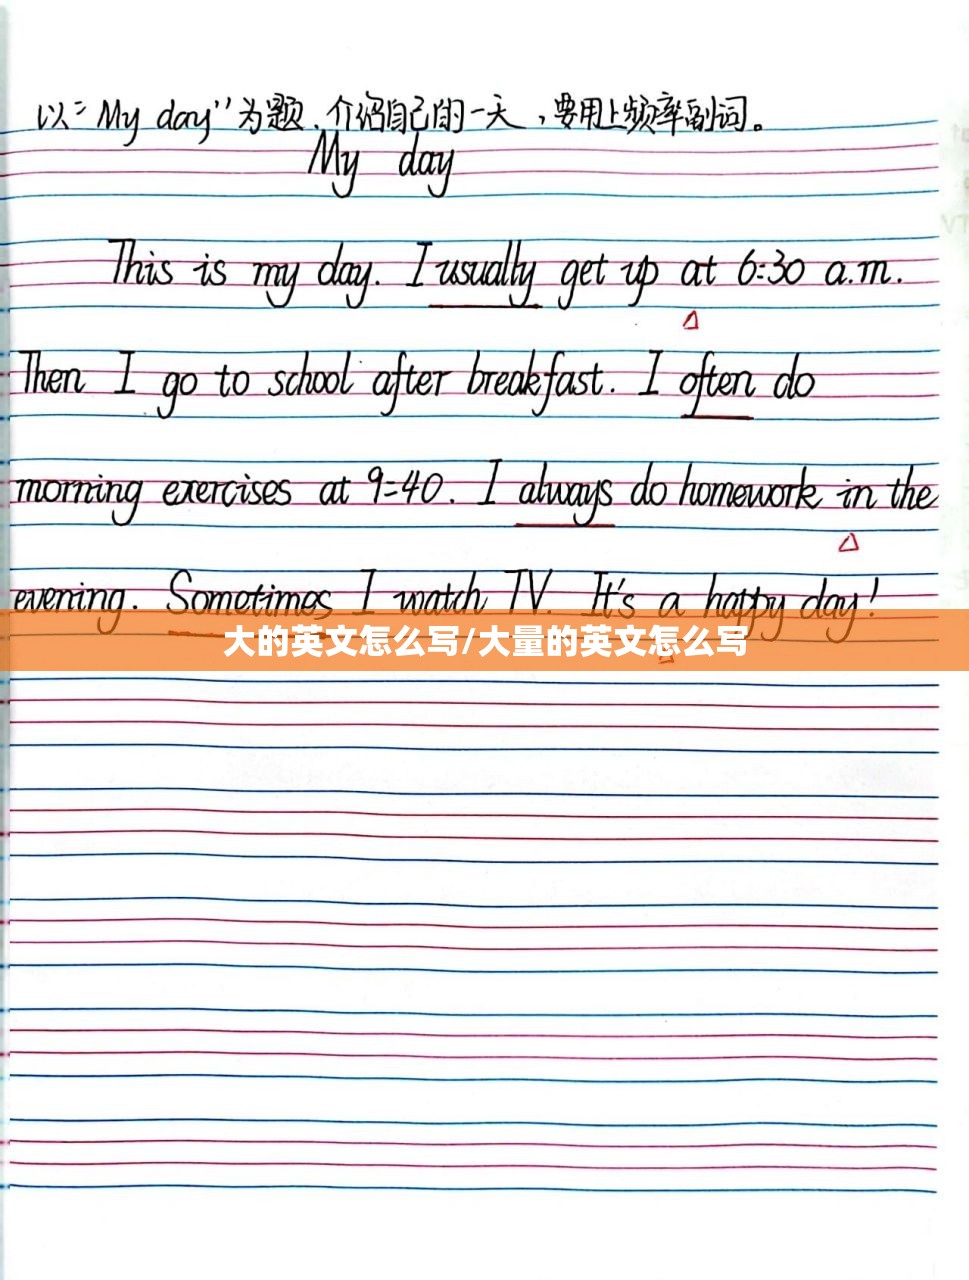 以“My day”为题，介绍自己的一天，要用上频率副词。
My day
This is my day. I usually get up at 6:30 a.m.
Then I go to school after breakfast. I often do
morning exercises at 9:40. I always do homework in the
evening. Sometimes I watch TV. It's a happy day!
大的英文怎么写/大量的英文怎么写